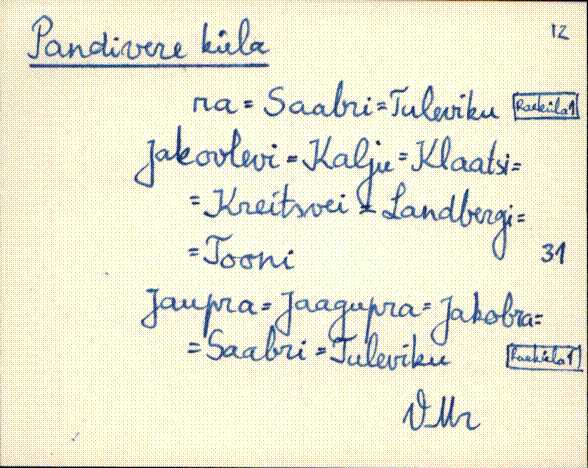 Pandivere küla 12
ra = Saabri = Tuleviku Raeküla 1
Jakovlevi = Kalju = Klaatsi =
= Kreitsvei = Landbergi =
= Tooni 31
Jaupra = Jaagupra = Jakobra =
= Saabri = Tuleviku Raeküla 1